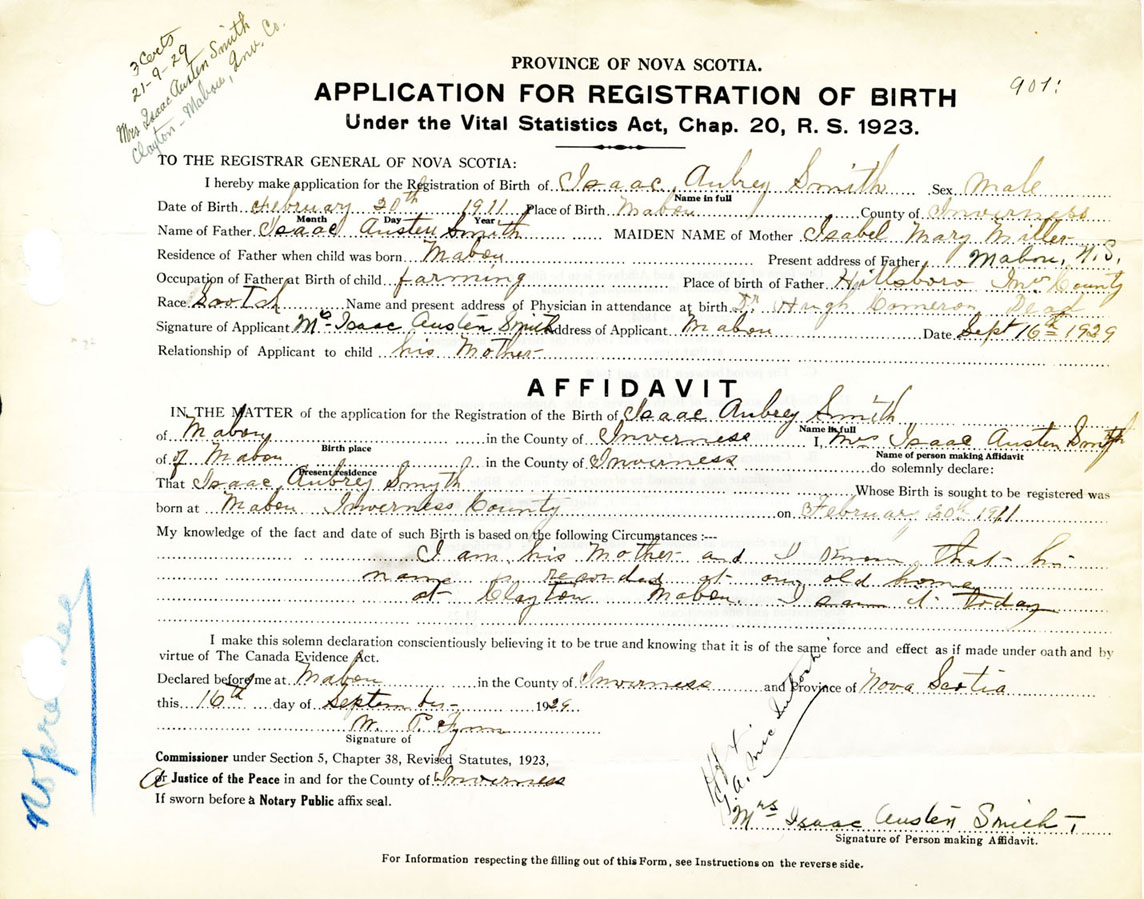 3 Certs
21-9-29
Mrs Isaac Austen Smith
Clayton - Mabou, Inv. Co.
PROVINCE OF NOVA SCOTIA.
901
APPLICATION FOR REGISTRATION OF BIRTH
Under the Vital Statistics Act, Chap. 20, R. S. 1923.
TO THE REGISTRAR GENERAL OF NOVA SCOTIA:
I hereby make application for the Registration of Birth of Isaac Aubrey Smith Sex Male
Name in full
Date of Birth February 20th 1911 Place of Birth Mabou County of Inverness
Month Day Year
Name of Father Isaac Austen Smith MAIDEN NAME of Mother Isabel Mary Miller
Residence of Father when child was born Mabou Present address of Father Mabou, N.S.
Occupation of Father at Birth of child farming Place of birth of Father Hillsboro Inv County
Race Scotch Name and present address of Physician in attendance at birth Dr Hugh Cameron Dead
Signature of Applicant Mrs Isaac Austen Smith Address of Applicant Mabou Date Sept 16th 1929
Relationship of Applicant to child his Mother
AFFIDAVIT
IN THE MATTER of the application for the Registration of the Birth of Isaac Aubrey Smith
Name in full
of Mabou in the County of Inverness I, Mrs Isaac Austen Smith
Birth place Name of person making Affidavit
of of Mabou in the County of Inverness do solemnly declare:
Present residence
That Isaac Aubrey Smith Whose Birth is sought to be registered was
born at Mabou Inverness County on February 20th 1911
My knowledge of the fact and date of such Birth is based on the following Circumstances :---
I am his Mother and I know that his
name is recorded at our old home
at Clayton Mabou. I saw it today
I make this solemn declaration conscientiously believing it to be true and knowing that it is of the same force and effect as if made under oath and by
virtue of The Canada Evidence Act.
Declared before me at Mabou in the County of Inverness and Province of Nova Scotia
this 16th day of September 1929
W. P. Flynn
Signature of
Commissioner under Section 5, Chapter 38, Revised Statutes, 1923,
or Justice of the Peace in and for the County of Inverness
If sworn before a Notary Public affix seal.
Mrs Isaac Austen Smith
Signature of Person making Affidavit.
For Information respecting the filling out of this Form, see Instructions on the reverse side.